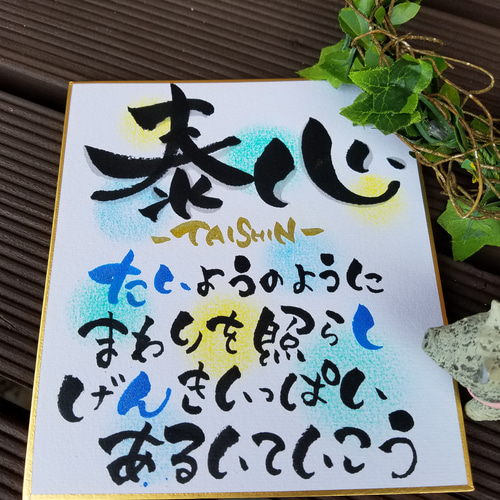 泰心
-TAISHIN-
たいようのように
まわりを照らし
げんきいっぱい
あるいていこう